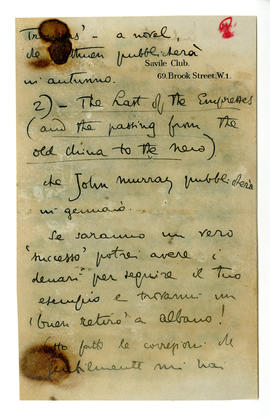 - a novel,
che Methuen pubblicherà
in autunno.
Savile Club.
69, Brook Street, W.1.
2) - The Last of the Empresses
(and the passing from the
old China to the new)
che John Murray pubblicherà
in gennaio.
Se saranno un vero
'successo' potrei avere i
denari per seguire il tuo
esempio e trovarmi un
'buen retiro' a Albano!
Ho fatto le correzioni che
gentilmente mi hai